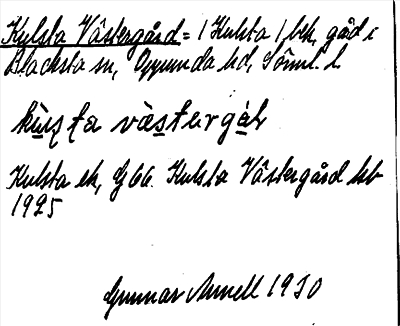 Kulsta Västergård = 1 Kulsta 1, bek, gård i
Blacksta sn, Oppunda hd, Söml. l.
västergår
Kulsta ek, G 66. Kulsta Västergård hb
1925
Gunnar Annell 1930